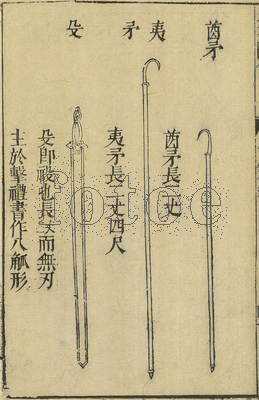 酋矛
夷矛
殳
酋矛長二丈
夷矛長二丈四尺
殳即祋也長丈而無刃
主於擊禮書作八觚形
fotoe